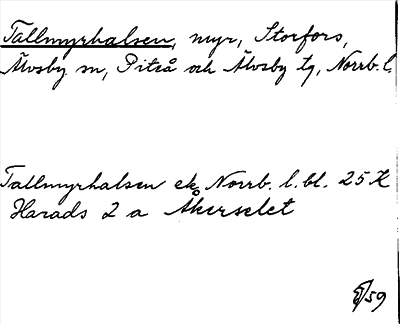 Tallmyrhalsen, myr, Storfors,
Älvsby sn, Piteå och Älvsby tg, Norrb. l.
Tallmyrhalsen ek. Norrb. l. bl. 25 K
Harads 2 a Åkerselet
/59